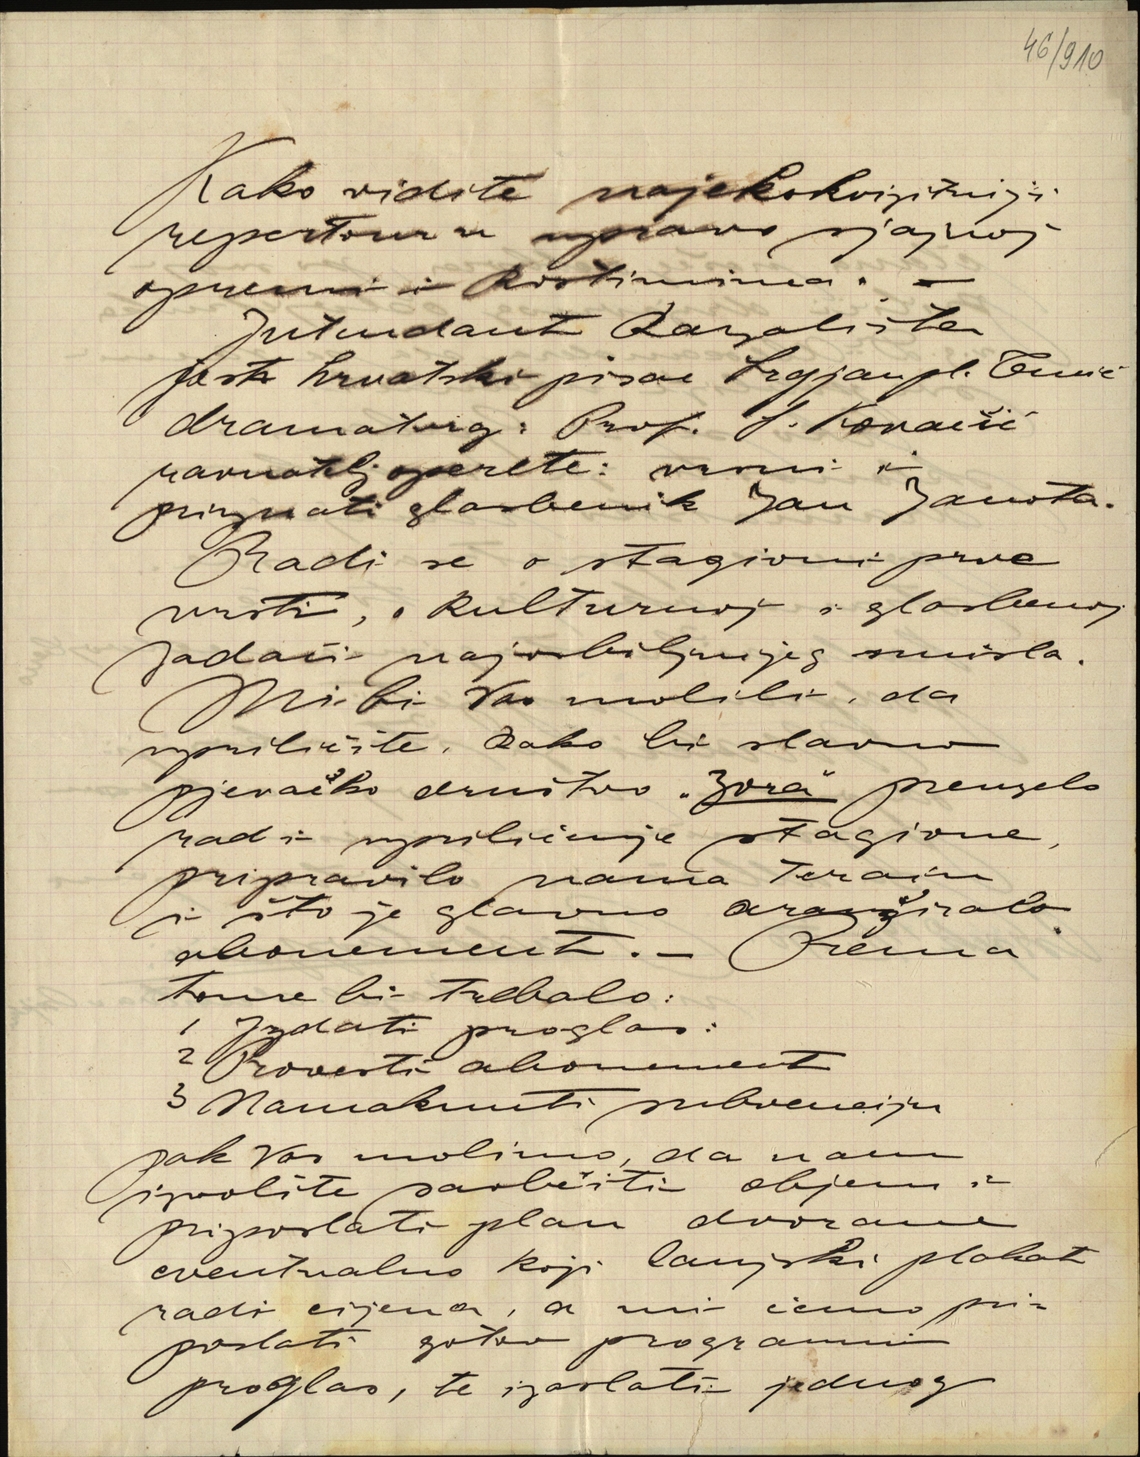 46/910
Kako vidite najekskvizitniji
repertoir u upravo sjajnoj
opremi i kostimima. —
Intendant Kazališta
jest hrvatski pisac Srgjan pl. Tucić
dramaturg: Prof. J. Kovačić
ravnatelj operete: vrsni i
priznati glasbenik Jan Janota.
Radi se o stagioni prve
vrsti, o kulturnoj i glasbenoj
zadaći najozbiljnijeg smisla.
Mi bi Vas molili, da
upriličite, kako bi slavno
pjevačko društvo „Zora" preuzelo
rad i upriličenje stagione,
pripravilo nama terain
i što je glavno aranžiralo
abonement. — Prema
tome bi trebalo:
1 Izdati proglas:
2 Provesti abonement
3 Namaknuti subvenciju
jak Vas molimo, da nam
izvolite saobćiti objem i
pripostlati plan dvorane
eventualno koji lanjski plakat
radi cijena, a mi ćemo pri-
poslati gotov program i
proglas, te izaslati jednog